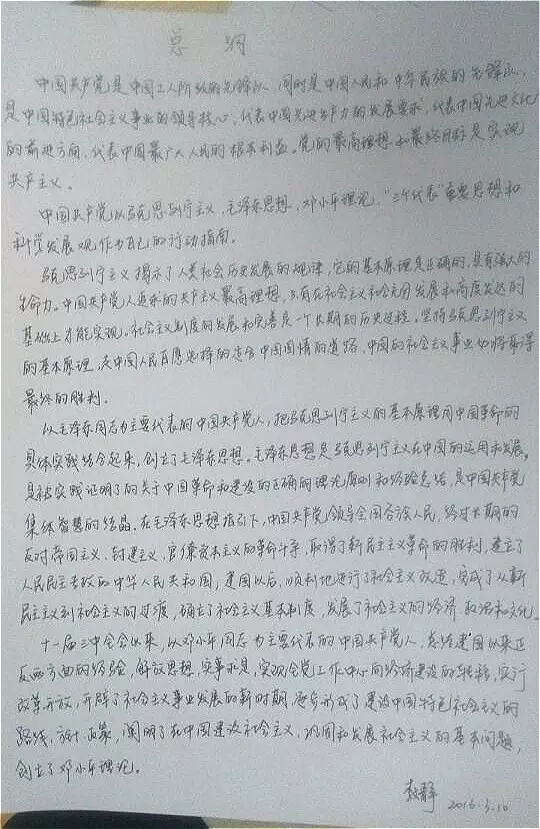 总纲
中国共产党是中国工人阶级的先锋队，同时是中国人民和中华民族的先锋队，
是中国特色社会主义事业的领导核心，代表中国先进生产力的发展要求，代表中国先进文化
的前进方向，代表中国最广大人民的根本利益。党的最高理想和最终目标是实现
共产主义。
中国共产党以马克思列宁主义、毛泽东思想、邓小平理论、“三个代表”重要思想和
科学发展观作为自己的行动指南。
马克思列宁主义揭示了人类社会历史发展的规律，它的基本原理是正确的，具有强大的
生命力。中国共产党人追求的共产主义最高理想，只有在社会主义社会充分发展和高度发达的
基础上才能实现。社会主义制度的发展和完善是一个长期的历史过程。坚持马克思列宁主义
的基本原理，走中国人民自愿选择的适合中国国情的道路，中国的社会主义事业必将取得
最终的胜利。
以毛泽东同志为主要代表的中国共产党人，把马克思列宁主义的基本原理同中国革命的
具体实践结合起来，创立了毛泽东思想。毛泽东思想是马克思列宁主义在中国的运用和发展，
是被实践证明了的关于中国革命和建设的正确的理论原则和经验总结，是中国共产党
集体智慧的结晶。在毛泽东思想指引下，中国共产党领导全国各族人民，经过长期的
反对帝国主义、封建主义、官僚资本主义的革命斗争，取得了新民主主义革命的胜利，建立了
人民民主专政的中华人民共和国；建国以后，顺利地进行了社会主义改造，完成了从新
民主主义到社会主义的过渡，确立了社会主义基本制度，发展了社会主义的经济、政治和文化。
十一届三中全会以来，以邓小平同志为主要代表的中国共产党人，总结建国以来正
反两方面的经验，解放思想，实事求是，实现全党工作中心向经济建设的转移，实行
改革开放，开辟了社会主义事业发展的新时期，逐步形成了建设中国特色社会主义的
路线、方针、政策，阐明了在中国建设社会主义、巩固和发展社会主义的基本问题，
创立了邓小平理论。
2016.3.16